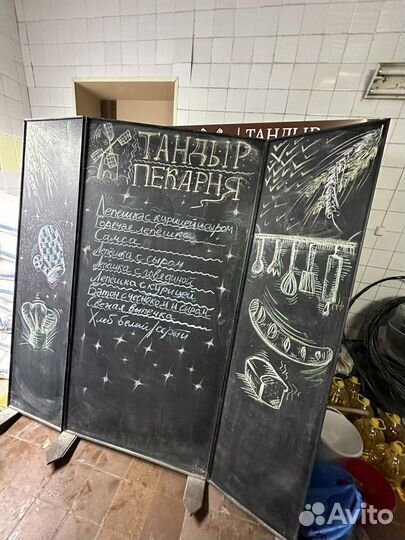 ТАНДЫР
ТАНДЫР
ПЕКАРНЯ
Лепешка с курицей и сыром
Горячие лепешки
Самса
Лепешка с сыром
Лепешка с говядиной
Лепешка с курицей
Батон с чесноком и сыром
Свежая выпечка
Хлеб белый/серый
Avito